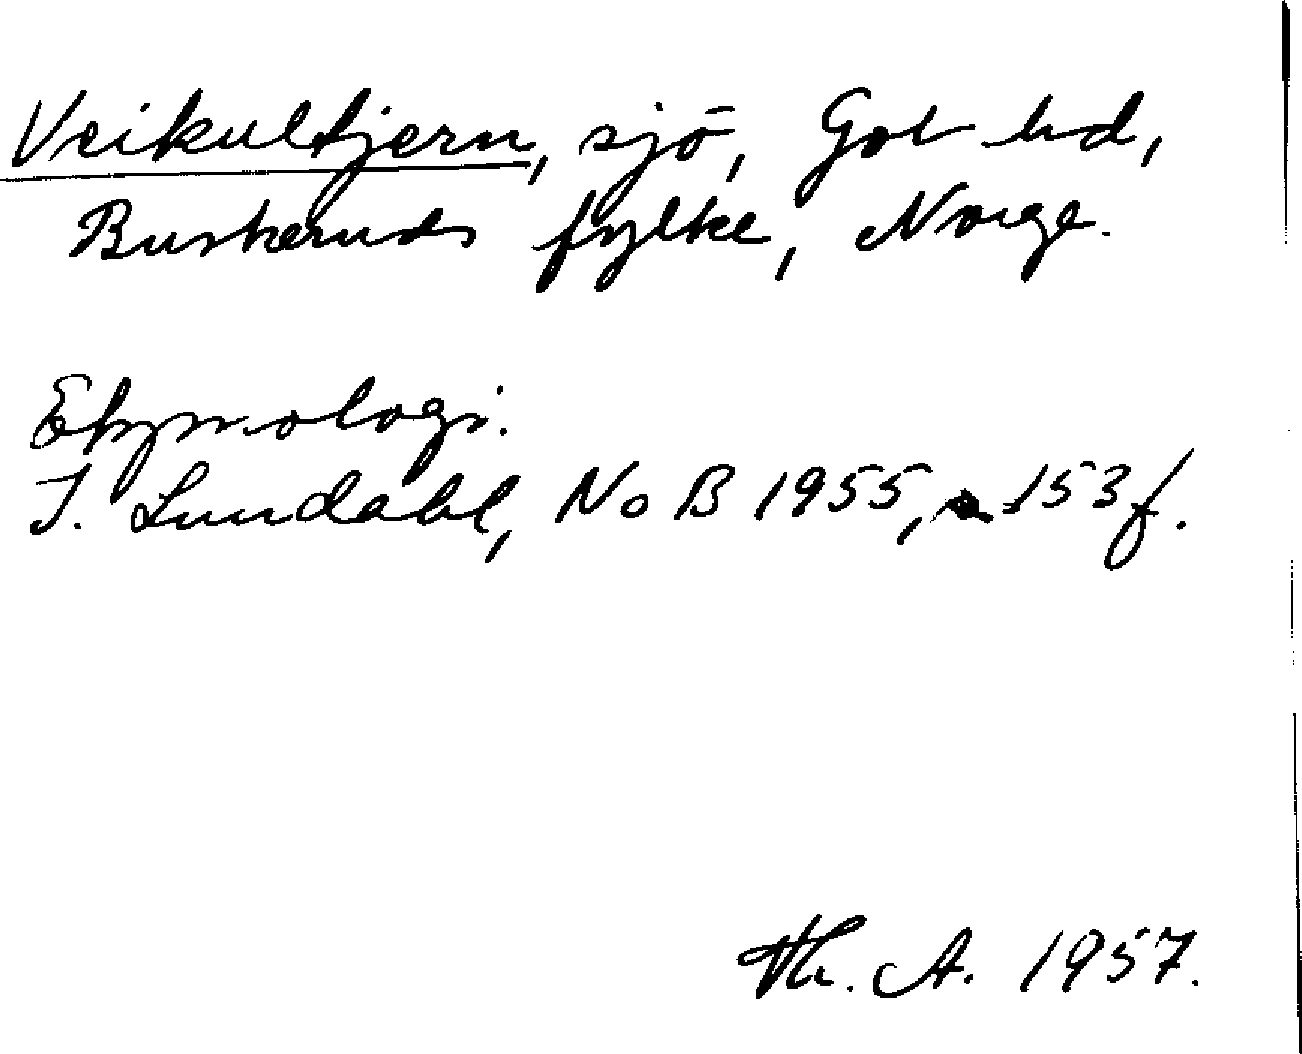 Veikultjern, sjö, Gol hd,
Buskeruds fylke, Norge.
Etymologi.
I. Lundahl, NoB 1955, s. 153 f.
Th. A. 1957.